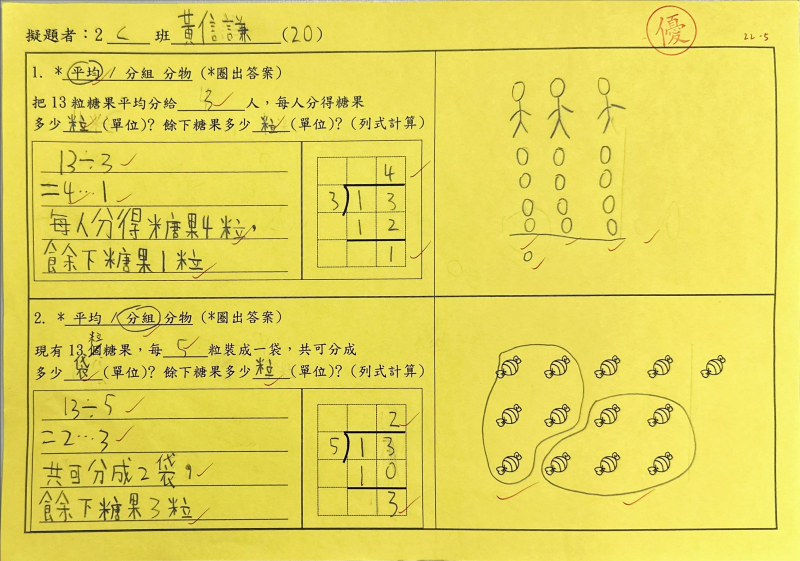 擬題者:2 C 班 黃信謙 (20)
優
22-5
1. * 平均 / 分組 分物 (*圈出答案)
把 13 粒糖果平均分給 3 人,每人分得糖果
多少 粒 (單位)? 餘下糖果多少 粒 (單位)? (列式計算)
13÷3
=4…1
每人分得糖果4粒,
餘下糖果1粒
4
3 1 3
1 2
1
2. * 平均 / 分組 分物 (*圈出答案)
粒
現有 13 個糖果,每 5 粒裝成一袋,共可分成
多少 袋 (單位)? 餘下糖果多少 粒 (單位)? (列式計算)
13÷5
=2…3
共可分成2袋,
餘下糖果3粒
2
5 1 3
1 0
3